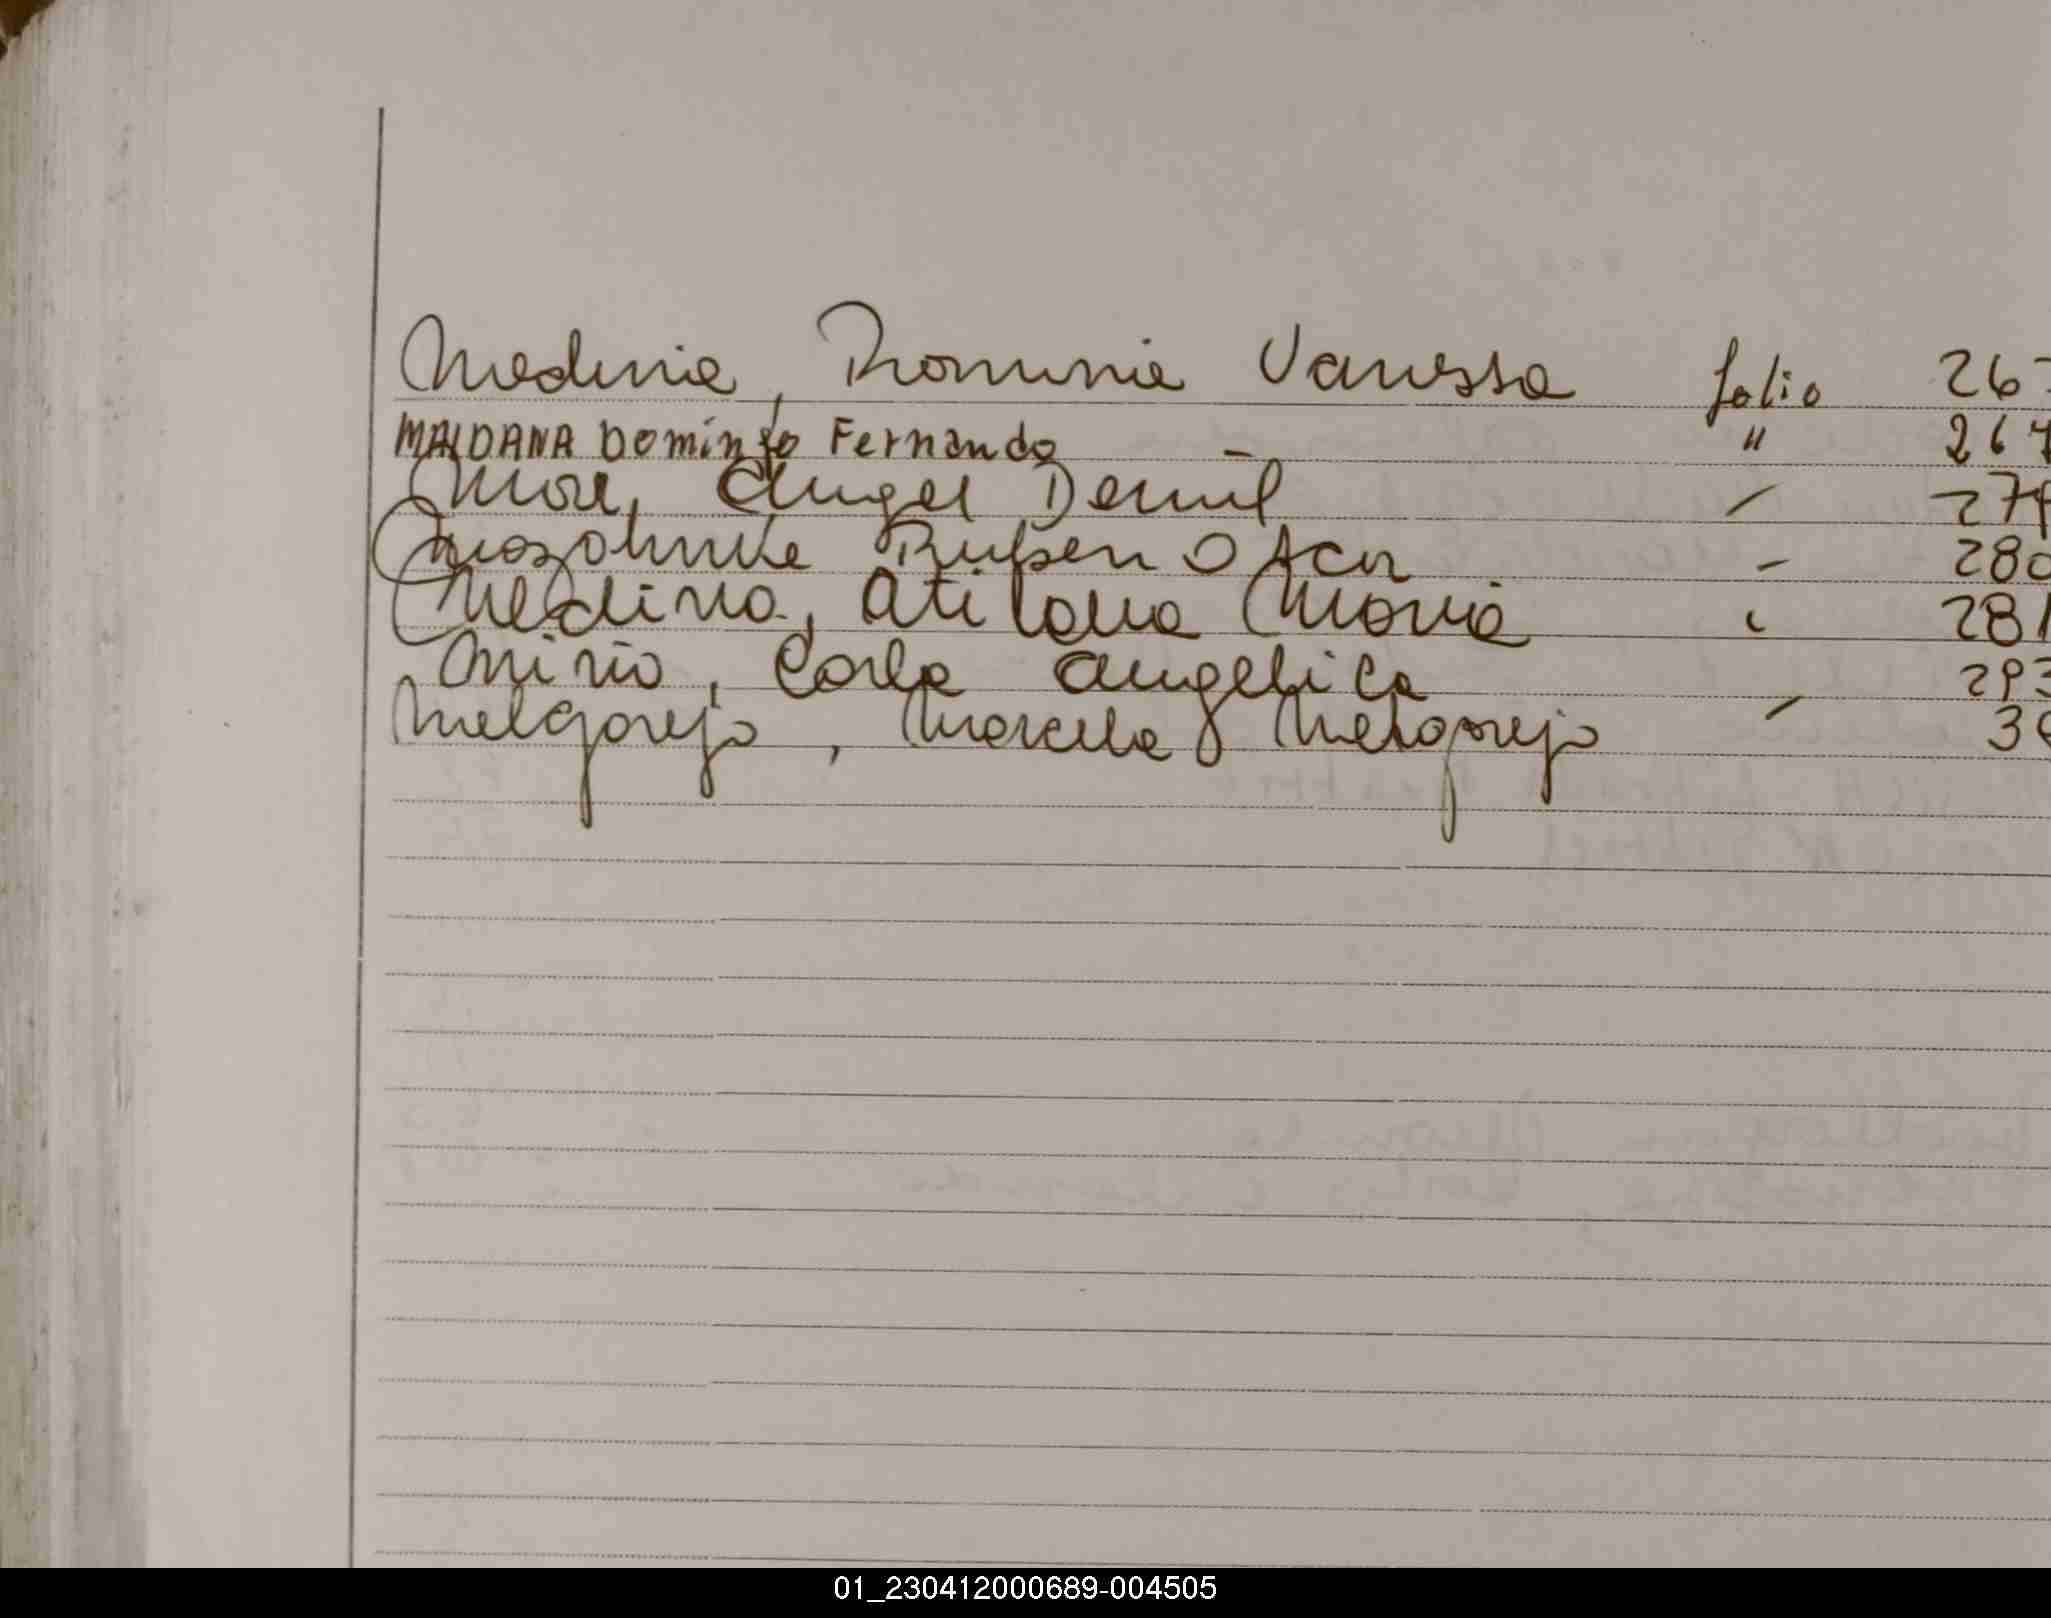 Medina, Romina Vanessa folio 267
MALDANA Domingo Fernando " 267
Mora, Angel Daniel - 279
Ruben Oscar - 280
Medina, Atiliana Maria " 281
Miño, Carla Angelica 293
Melgarejo, Marcela Melgarejo - 30
01_230412000689-004505